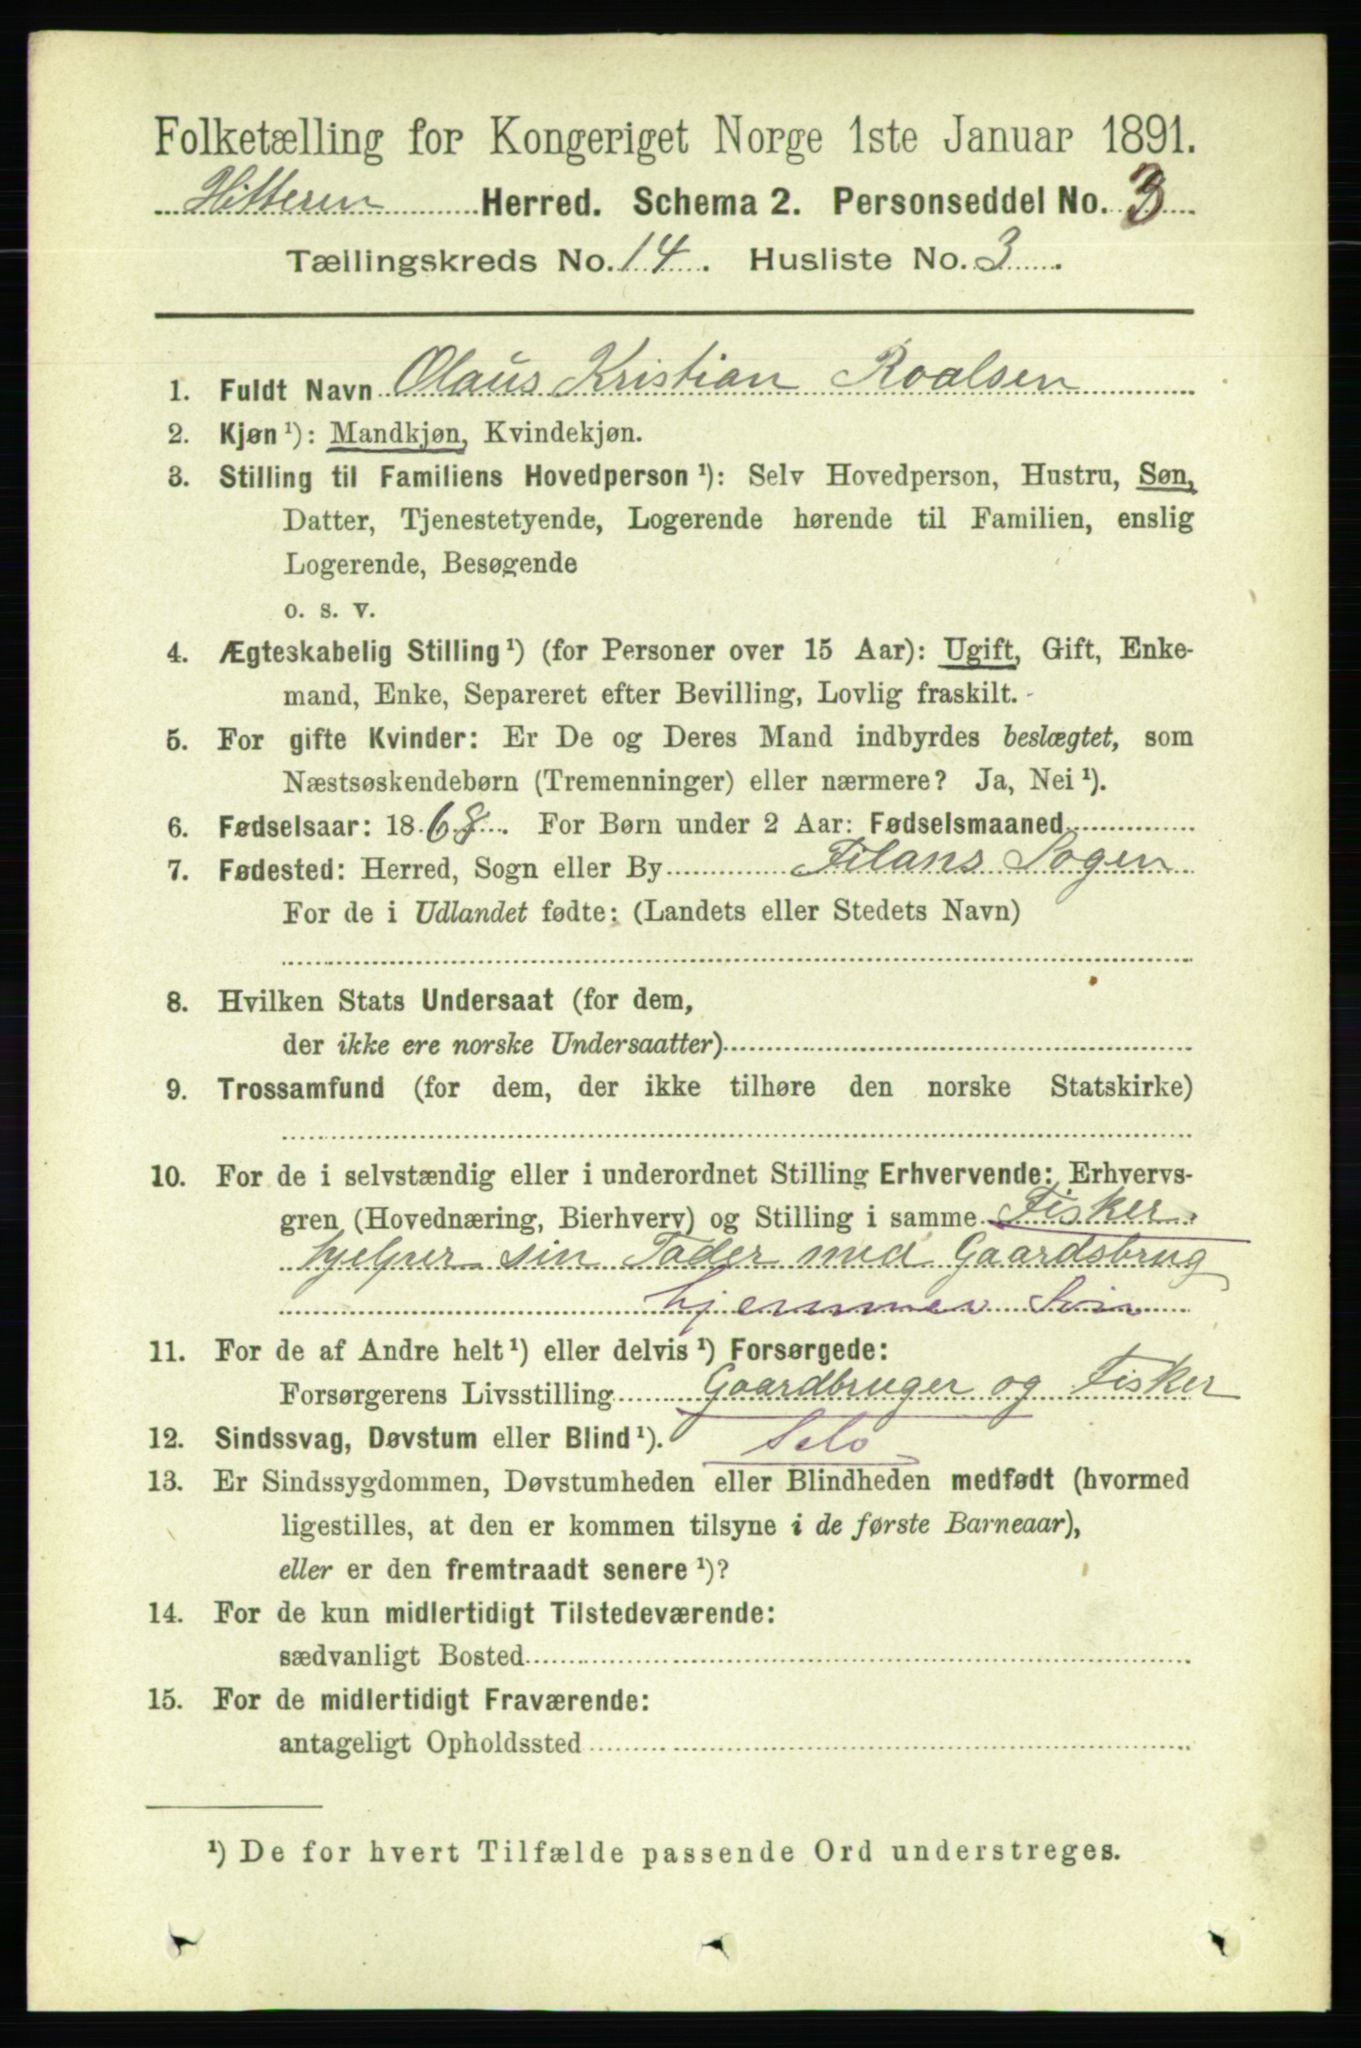 Folketælling for Kongeriget Norge 1ste Januar 1891.
Hitteren Herred. Schema 2. Personseddel No. 3
Tællingskreds No. 14. Husliste No. 3
1. Fuldt Navn Olaus Kristian Roalsen
2. Kjøn¹): Mandkjøn, Kvindekjøn.
3. Stilling til Familiens Hovedperson¹): Selv Hovedperson, Hustru, Søn,
Datter, Tjenestetyende, Logerende hørende til Familien, enslig
Logerende, Besøgende
o. s. v.
4. Ægteskabelig Stilling¹) (for Personer over 15 Aar): Ugift, Gift, Enke-
mand, Enke, Separeret efter Bevilling, Lovlig fraskilt.
5. For gifte Kvinder: Er De og Deres Mand indbyrdes beslægtet, som
Næstsøskendebørn (Tremenninger) eller nærmere? Ja, Nei¹).
6. Fødselsaar: 1868. For Børn under 2 Aar: Fødselsmaaned
7. Fødested: Herred, Sogn eller By Filans Sogen
For de i Udlandet fødte: (Landets eller Stedets Navn)
8. Hvilken Stats Undersaat (for dem,
der ikke ere norske Undersaatter)
9. Trossamfund (for dem, der ikke tilhøre den norske Statskirke)
10. For de i selvstændig eller i underordnet Stilling Erhvervende: Erhvervs-
gren (Hovednæring, Bierhverv) og Stilling i samme Fisker
hjelper sin Fader med Gaardsbrug
hjemmev Søn
11. For de af Andre helt¹) eller delvis¹) Forsørgede:
Forsørgerens Livsstilling Gaardbruger og Fisker
12. Sindssvag, Døvstum eller Blind¹). Selv
13. Er Sindssygdommen, Døvstumheden eller Blindheden medfødt (hvormed
ligestilles, at den er kommen tilsyne i de første Barneaar),
eller er den fremtraadt senere¹)?
14. For de kun midlertidigt Tilstedeværende:
sædvanligt Bosted
15. For de midlertidigt Fraværende:
antageligt Opholdssted
¹) De for hvert Tilfælde passende Ord understreges.